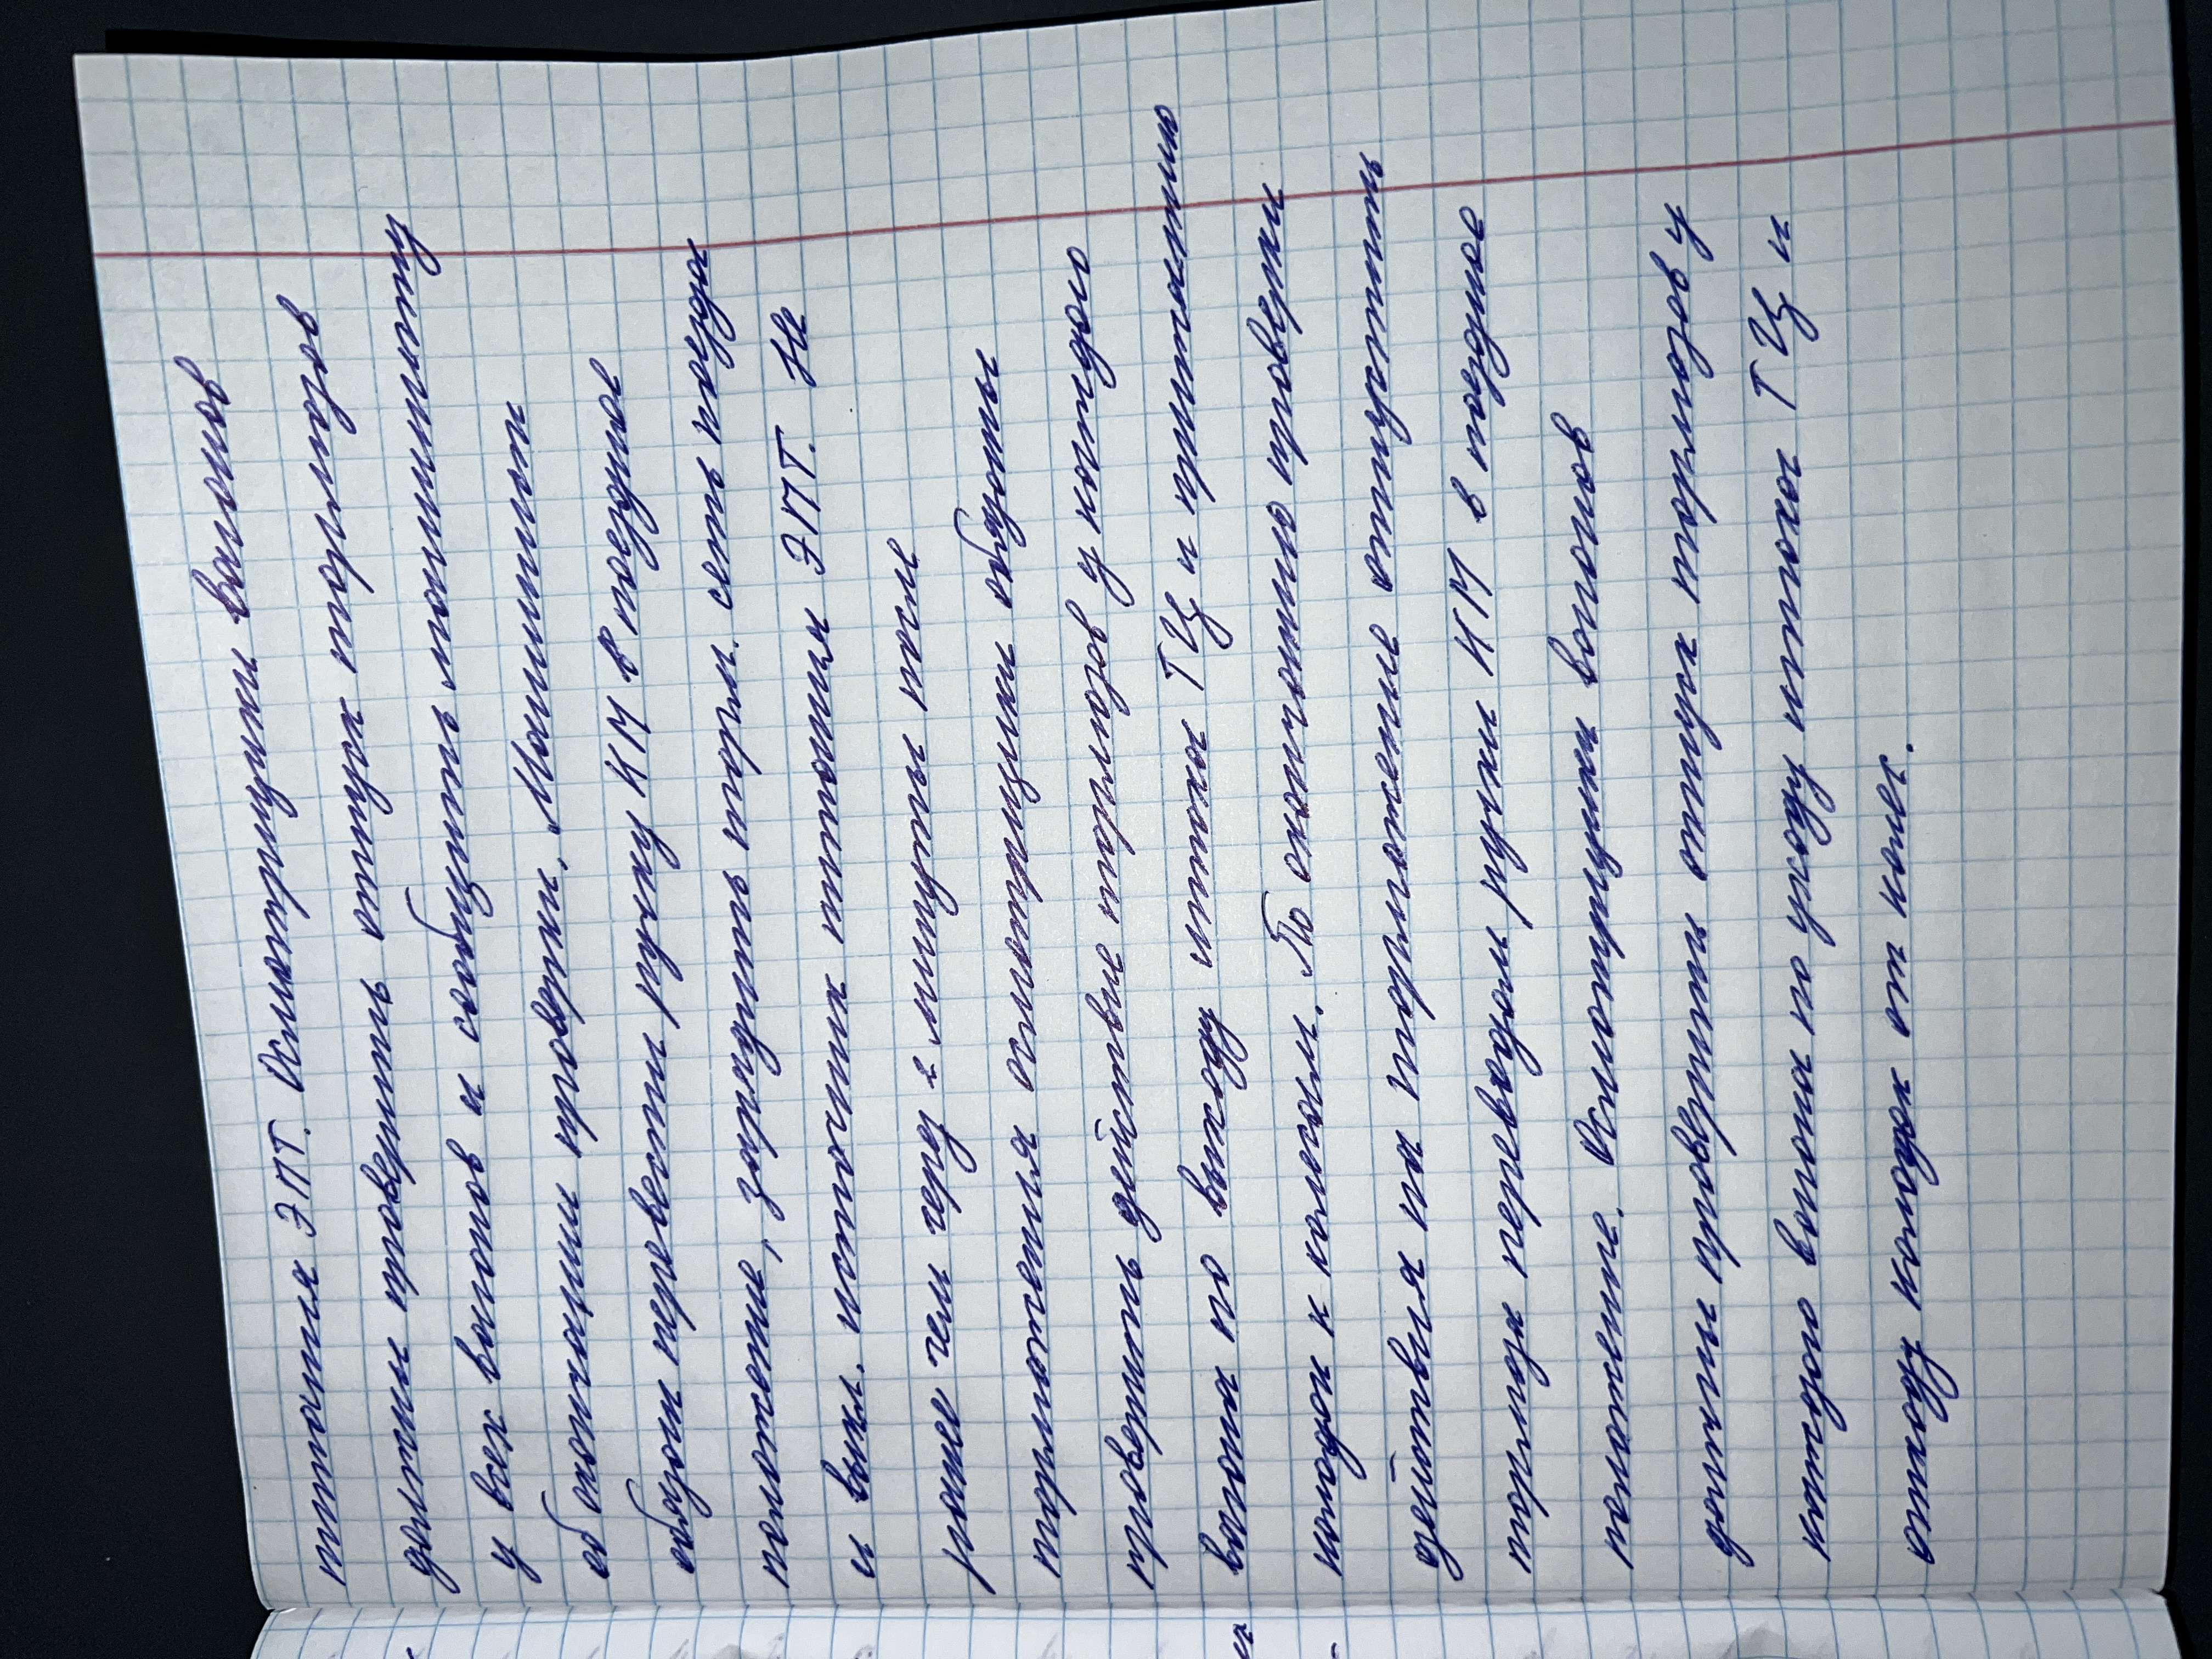 питания ЭПТ. Осмотрщики вагонов
должны проверить отпуск тормозов
у всех вагонов и сообщить машинисту
об окончании проверки. Машинист
обязан перевести ручку КМ в поездное
положение, зарядить торм. сеть поезда
и выкл. источник питания ЭПТ. Не
ранее чем через 2 минуты после
торможения осмотрщики обязаны
проверить действие тормозов у каждого
вагона по выходу штока ТЦ и прижатию
колодок к колесам. По окончанию проверки
действия на торможение отпустить
тормоза переводом ручки КМ в поездное
положение. Осмотрщики вагонов
должны проверить отпуск тормозов у
каждого вагона по уходу штока ТЦ и
отходу колодок от колес.